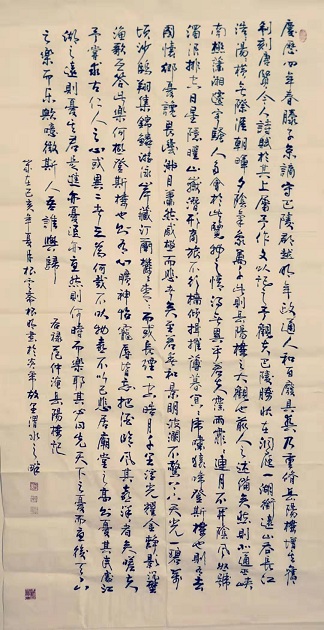 慶歷四年春滕子京謫守巴陵郡越明年政通人和百廢具興乃重修岳陽樓增其舊
制刻唐賢今人詩賦於其上屬予作文以記之予觀夫巴陵勝狀在洞庭一湖銜遠山吞長江
浩浩湯湯橫無際涯朝暉夕陰氣象萬千此則岳陽樓之大觀也前人之述備矣然則北通巫峽
南極瀟湘遷客騷人多會於此覽物之情得無異乎若夫霪雨霏霏連月不開陰風怒號
濁浪排空日星隱曜山岳潛形商旅不行檣傾楫摧薄暮冥冥虎嘯猿啼登斯樓也則有去
國懷鄉憂讒畏譏滿目蕭然感極而悲者矣至若春和景明波瀾不驚上下天光一碧萬
頃沙鷗翔集錦鱗游泳岸芷汀蘭鬱鬱青青而或長煙一空皓月千里浮光耀金靜影沉璧
漁歌互答此樂何極登斯樓也則有心曠神怡寵辱皆忘把酒臨風其喜洋洋者矣嗟夫
予嘗求古仁人之心或異二者之為何哉不以物喜不以己悲居廟堂之高則憂其民處江
湖之遠則憂其君是進亦憂退亦憂然則何時而樂耶其必曰先天下之憂而憂後天下
之樂而樂歟噫微斯人吾誰與歸
右錄范仲淹岳陽樓記
歲在己亥年夏月 書於 渭水之畔